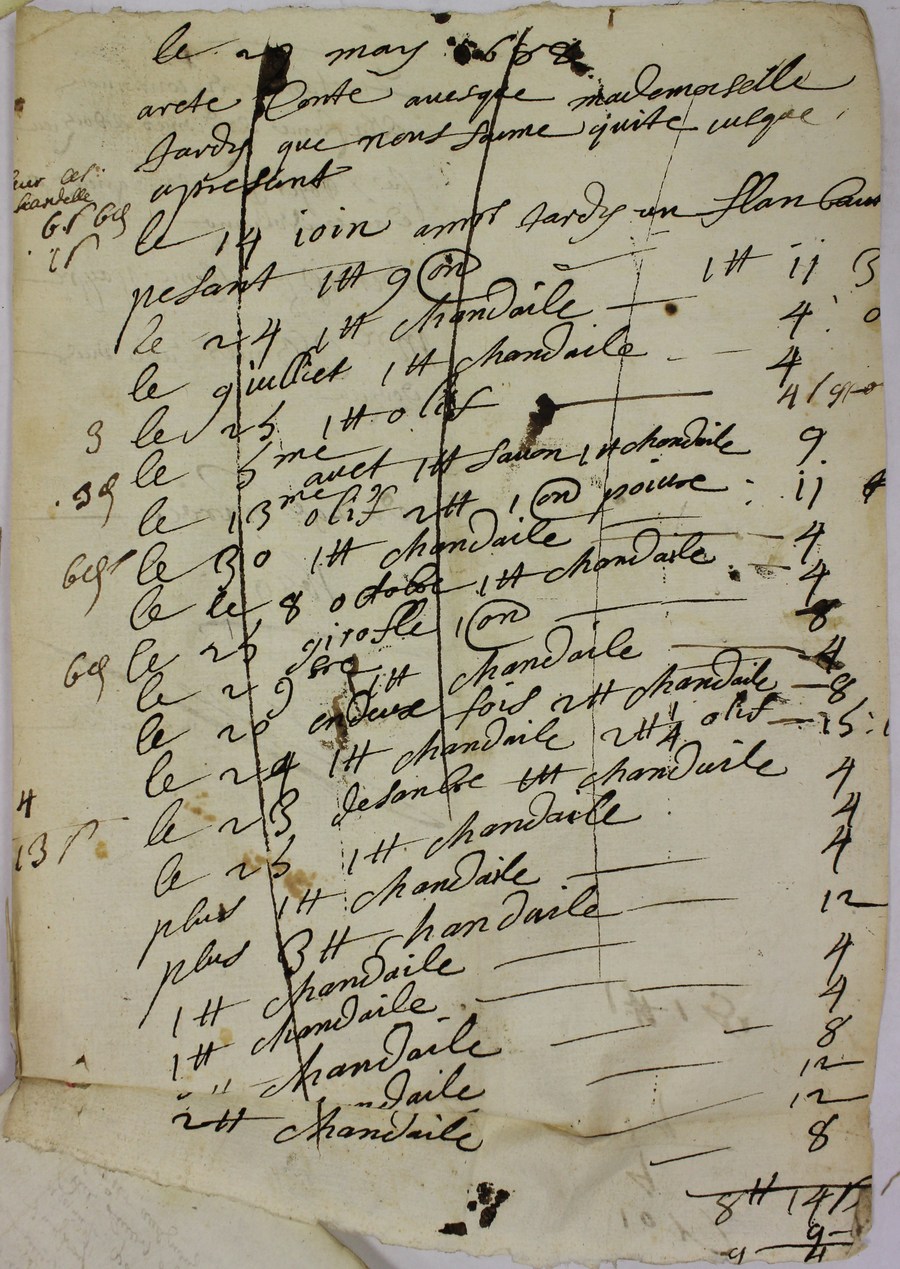 le 2 may 1658
arete Conte avesque mademoiselle
tardy que nous some quite iusque
apresant
le 14 ioin amor tardy un flanbaux
pesant 1tt 9 on 1tt ii 3
le 24 1tt Chandaile 4 0
le 9 iulliet 1tt Chandaile 4
3 le 25 1tt olif 4
le 5me auct 1tt savon 1tt chandaile 9
39 le 13me olif 2tt 1 on poivre ii
le 30 1tt chandaile 4
le le 8 octobre 1tt chandaile 4
le 25 girofle 1 on 8
le 2 9bre 1tt chandaile 4
le 20 endeux fois 2tt chandaile 8
le 24 1tt chandaile 2tt 1/4 olif 15
le 23 desanbre 1tt chandaile 4
le 25 1tt chandaile 4
plus 1tt chandaile 4
plus 3tt Chandaile 12
1tt chandaile 4
1tt chandaile 4
chandaile 8
12
12
2tt chandaile 8
8tt 14s
9
9 4